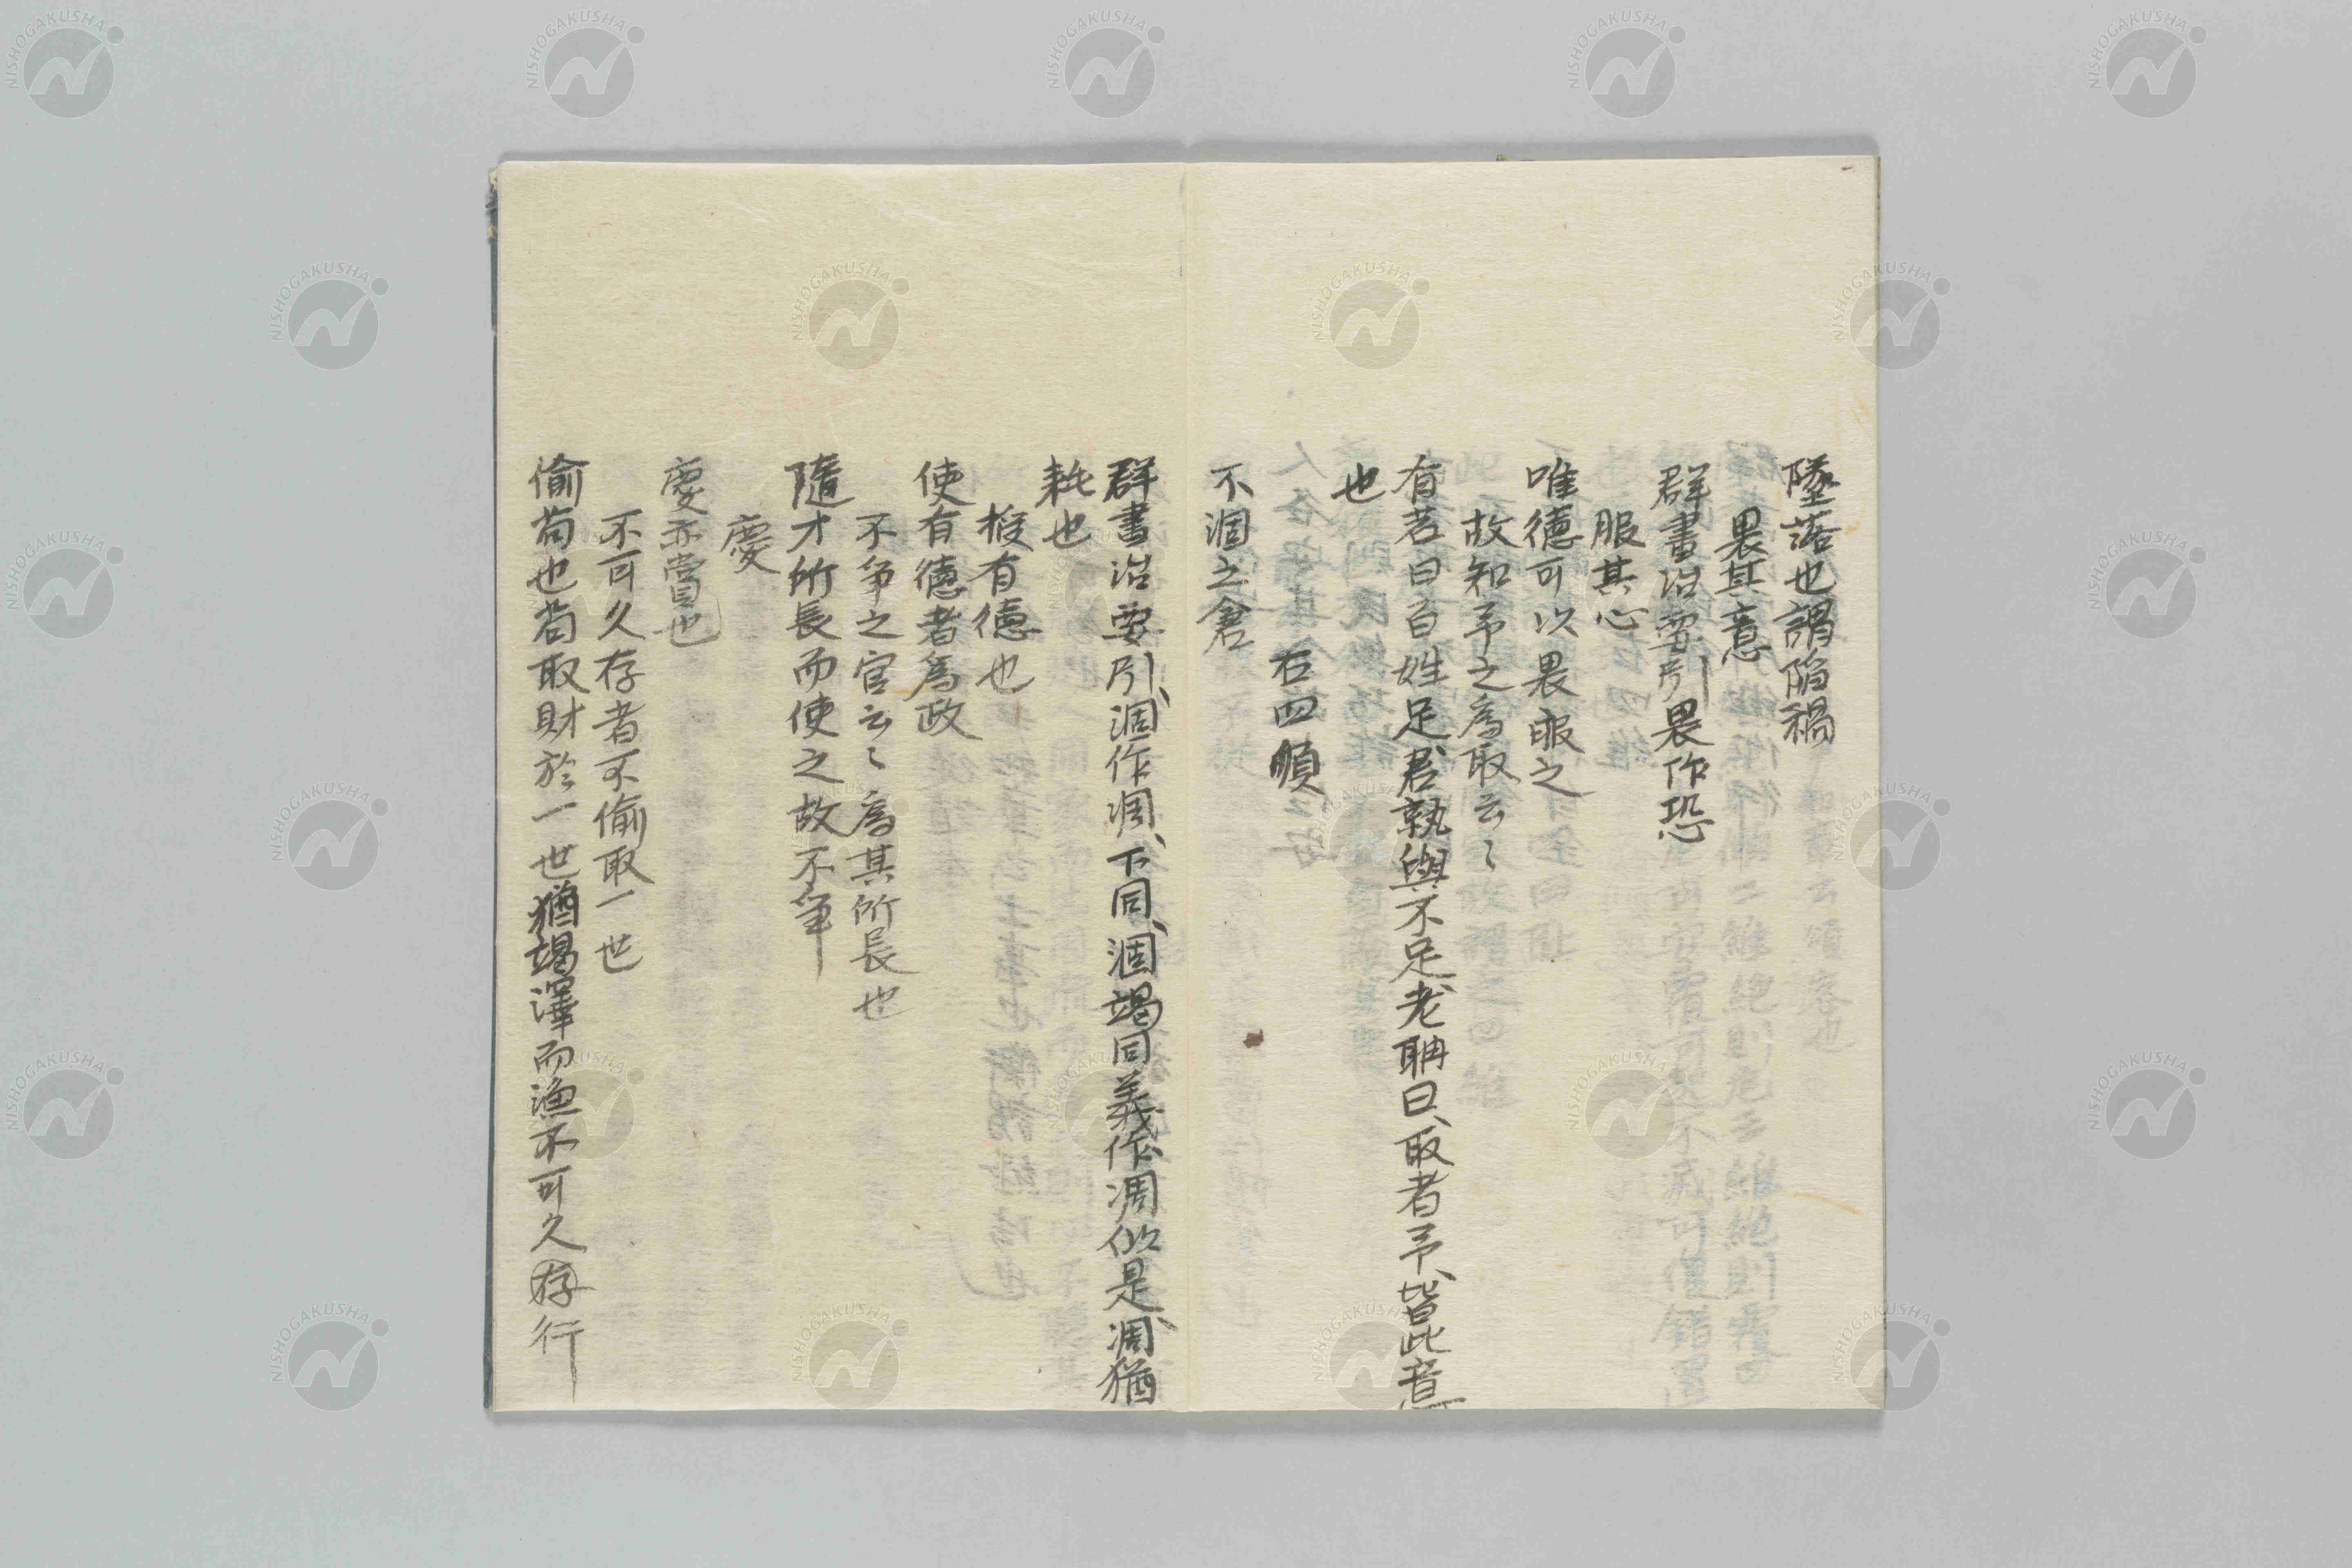 墜落也謂陷禍
畏其意
群書治要引畏作恐
服其心
唯德可以畏服之
故知予之為取云〻
有若曰百姓足君孰與不足老聃曰取者予皆此意
也
右四順
不涸之倉
群書治要引涸作凋下同涸竭同義作凋似是凋猶
耗也
授有德也
使有德者為政
不爭之官云〻為其所長也
隨才所長而使之故不爭
慶
慶亦賞也
不可久存者不偷取一世
偷苟也苟取財於一世猶竭澤而漁不可久存行
NISHOGAKUSHA